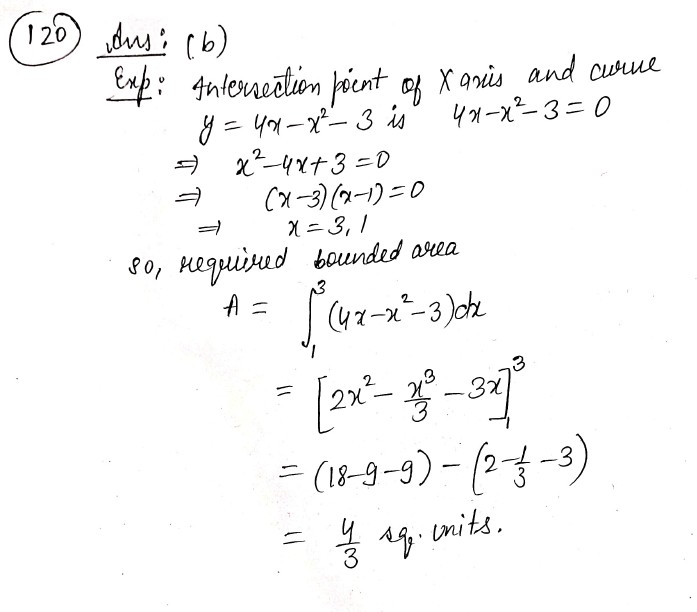 120 Ans: (b)
Exp: Intersection point of X axis and curve
y = 4x – x² – 3 is 4x – x² – 3 = 0
⇒ x² – 4x + 3 = 0
⇒ (x – 3)(x – 1) = 0
⇒ x = 3, 1
so, required bounded area
A = ∫₁³ (4x – x² – 3) dx
= [2x² – x³/3 – 3x]₁³
= (18 – 9 – 9) – (2 – 1/3 – 3)
= 4/3 sq. units.